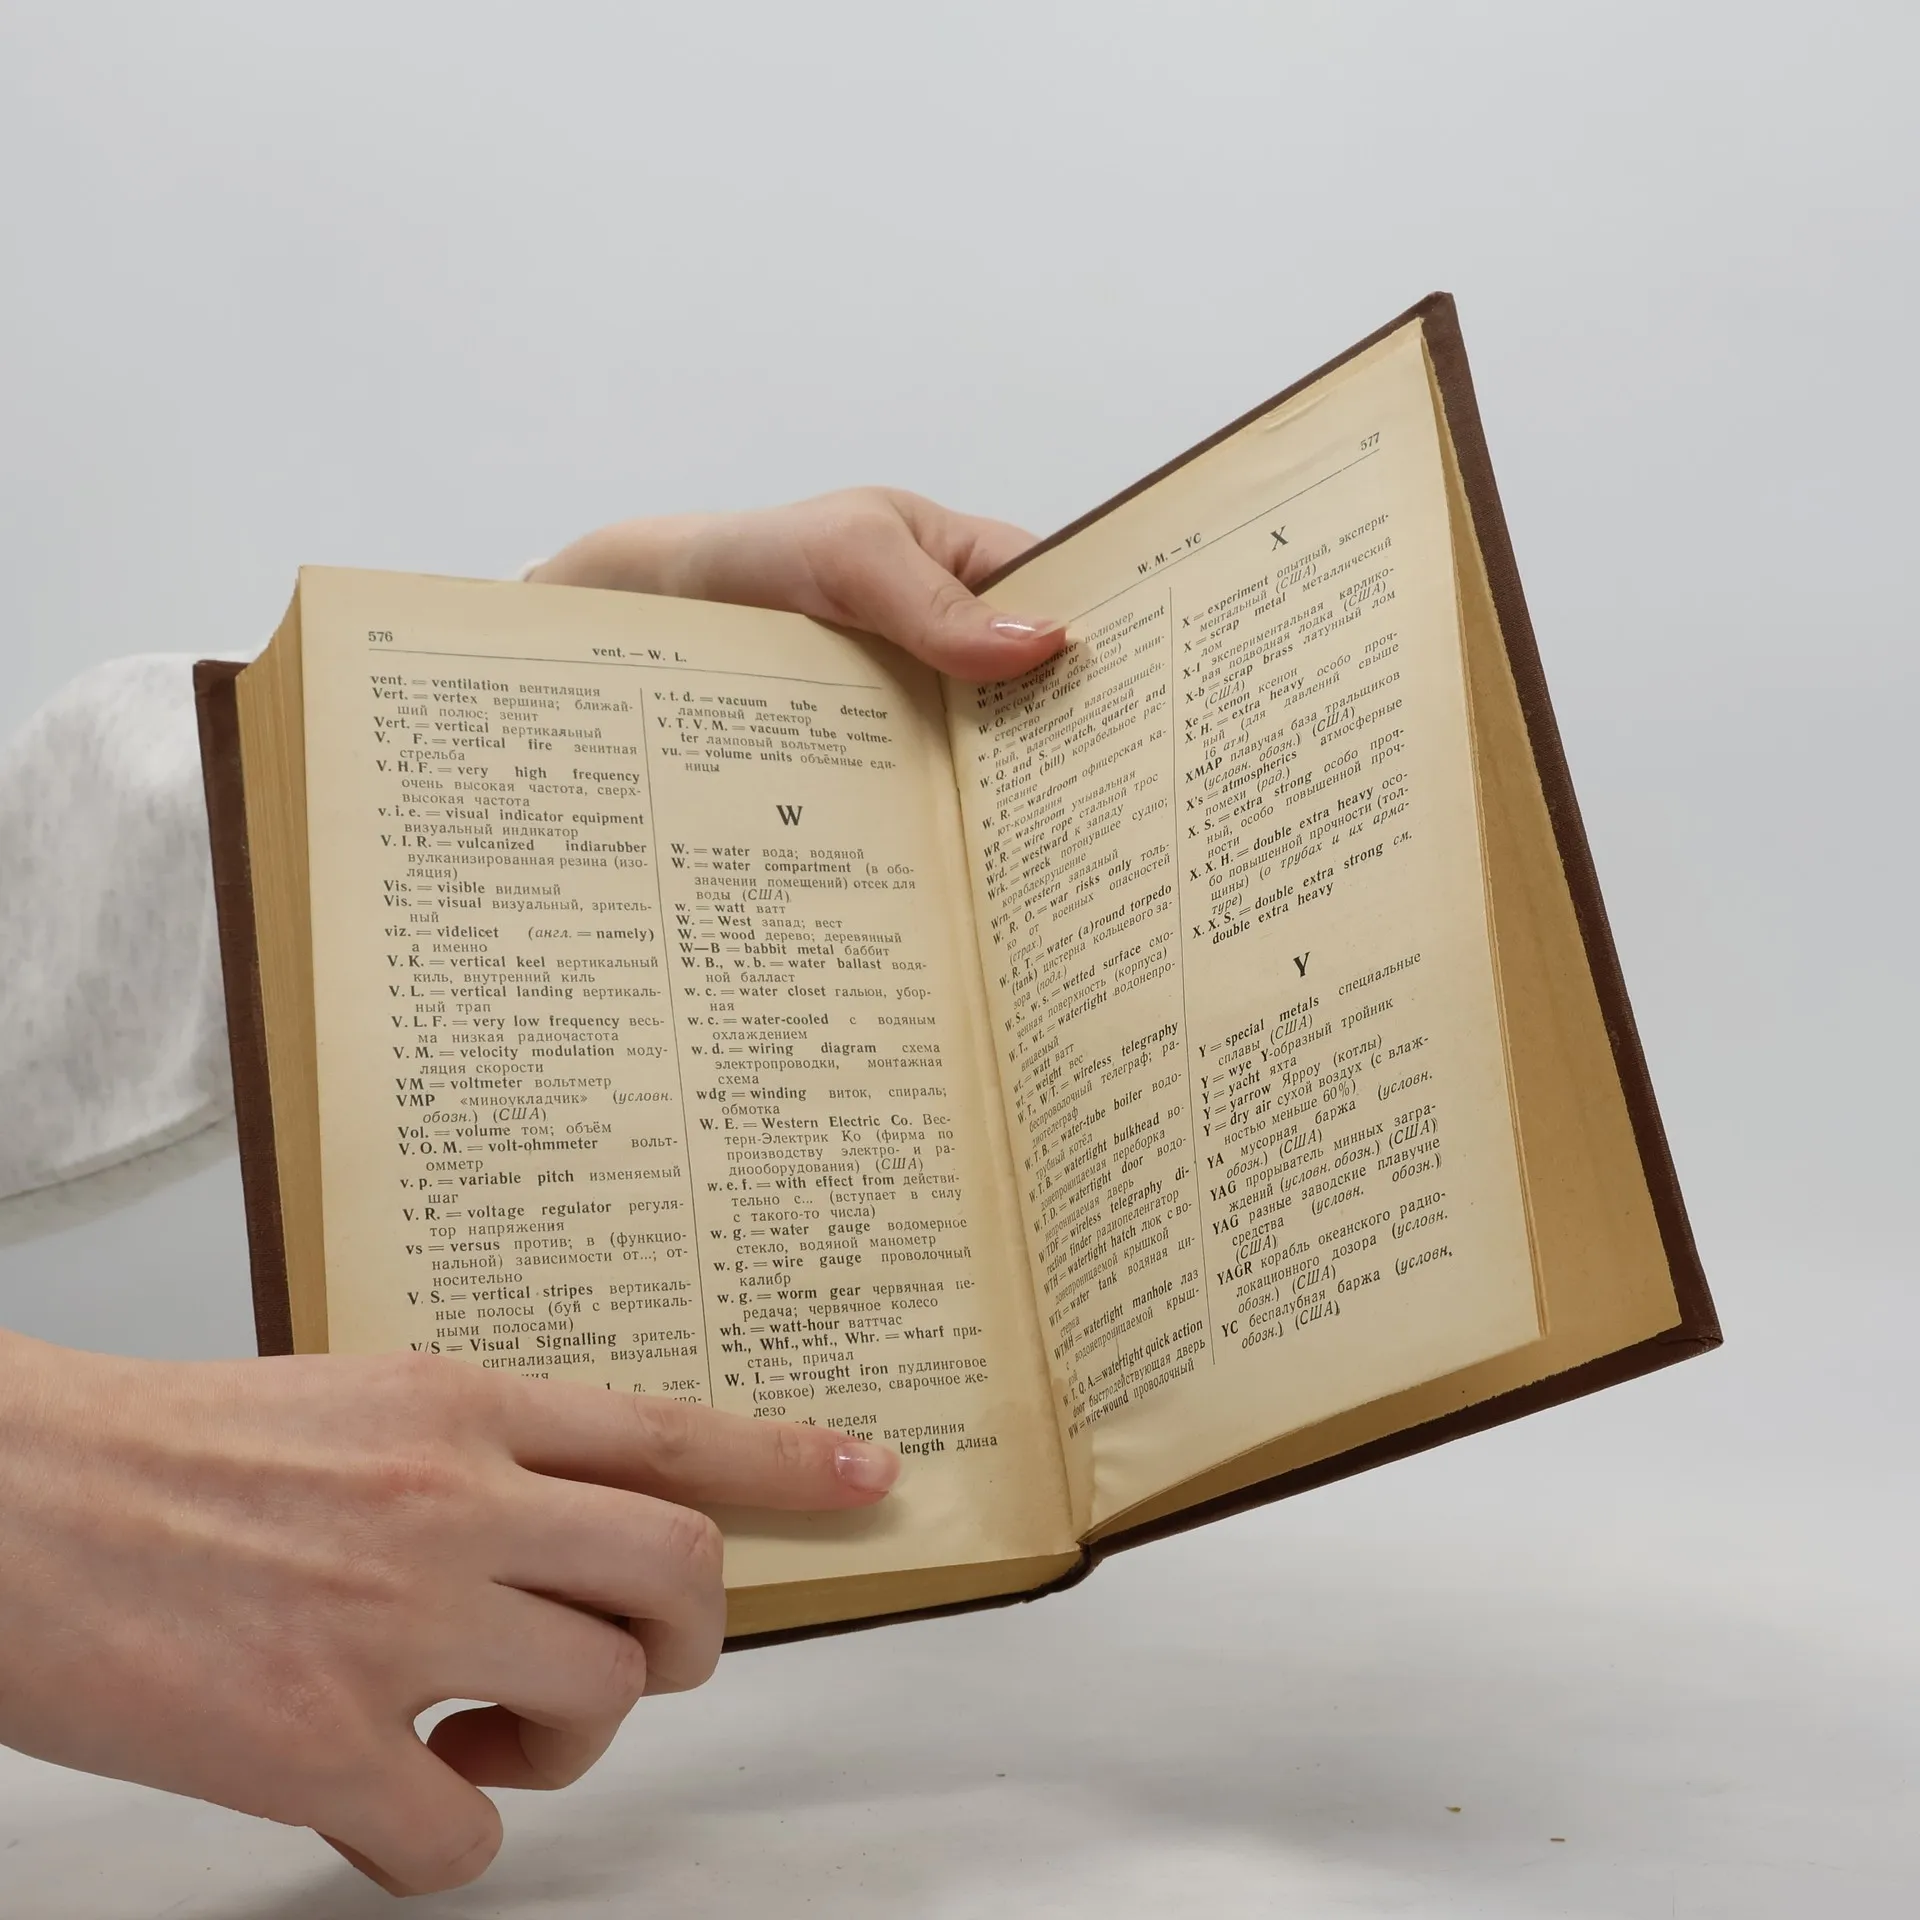 576
vent. — W. L.
vent. = ventilation вентиляция
Vert. = vertex вершина; ближай-
ший полюс; зенит
Vert. = vertical вертикальный
V. F. = vertical fire зенитная
стрельба
V. H. F. = very high frequency
очень высокая частота, сверх-
высокая частота
v. i. e. = visual indicator equipment
визуальный индикатор
V. I. R. = vulcanized indiarubber
вулканизированная резина (изо-
ляция)
Vis. = visible видимый
Vis. = visual визуальный, зритель-
ный
viz. = videlicet (англ. = namely)
а именно
V. K. = vertical keel вертикальный
киль, внутренний киль
V. L. = vertical landing вертикаль-
ный трап
V. L. F. = very low frequency весь-
ма низкая радиочастота
V. M. = velocity modulation моду-
ляция скорости
VM = voltmeter вольтметр
VMP «миноукладчик» (условн.
обозн.) (США)
Vol. = volume том; объём
V. O. M. = volt-ohmmeter вольт-
омметр
v. p. = variable pitch изменяемый
шаг
V. R. = voltage regulator регуля-
тор напряжения
vs = versus против; в (функцио-
нальной) зависимости от...; от-
носительно
V. S. = vertical stripes вертикаль-
ные полосы (буй с вертикаль-
ными полосами)
V/S = Visual Signalling зритель-
сигнализация, визуальная
n. элек-
v. t. d. = vacuum tube detector
ламповый детектор
V. T. V. M. = vacuum tube voltme-
ter ламповый вольтметр
vu. = volume units объёмные еди-
ницы
W
W. = water вода; водяной
W. = water compartment (в обо-
значении помещений) отсек для
воды (США)
w. = watt ватт
W. = West запад; вест
W. = wood дерево; деревянный
W—B = babbit metal баббит
W. B., w. b. = water ballast водя-
ной балласт
w. c. = water closet гальюн, убор-
ная
w. c. = water-cooled с водяным
охлаждением
w. d. = wiring diagram схема
электропроводки, монтажная
схема
wdg = winding виток, спираль;
обмотка
W. E. = Western Electric Co. Вес-
терн-Электрик Ко (фирма по
производству электро- и ра-
диооборудования) (США)
w. e. f. = with effect from действи-
тельно с... (вступает в силу
с такого-то числа)
w. g. = water gauge водомерное
стекло, водяной манометр
w. g. = wire gauge проволочный
калибр
w. g. = worm gear червячная пе-
редача; червячное колесо
wh. = watt-hour ваттчас
wh., Whf., whf., Whr. = wharf при-
стань, причал
W. I. = wrought iron пудлинговое
(ковкое) железо, сварочное же-
лезо
неделя
line ватерлиния
length длина
577
W. M. — YC
волномер
W/M = weight or measurement
вес(ом) или объём(ом)
W. O. = War Office военное мини-
стерство
w. p. = waterproof влагозащищён-
ный, влагонепроницаемый
W. Q. and S. = watch, quarter and
station (bill) корабельное рас-
писание
W. R. = wardroom офицерская ка-
ют-компания
WR = washroom умывальная
W. R. = wire rope стальной трос
Wrd. = westward к западу
Wrk. = wreck потонувшее судно;
кораблекрушение
Wrn. = western западный
W. R. O. = war risks only толь-
ко от военных опасностей
(страх.)
W. R. T. = water (a)round torpedo
(tank) цистерна кольцевого за-
зора (подл.)
W. S., w. s. = wetted surface смо-
ченная поверхность (корпуса)
W. T., wt. = watertight водонепро-
ницаемый
wt. = watt ватт
wt. = weight вес
W. T., W/T. = wireless telegraphy
беспроволочный телеграф; ра-
диотелеграф
W. T. B. = water-tube boiler водо-
трубный котёл
W. T. B. = watertight bulkhead во-
донепроницаемая переборка
W. T. D. = watertight door водо-
непроницаемая дверь
WTDF = wireless telegraphy di-
rection finder радиопеленгатор
WTH = watertight hatch люк с во-
донепроницаемой крышкой
Wtk = water tank водяная ци-
стерна
WTMH = watertight manhole лаз
с водонепроницаемой крыш-
кой
W. T. Q. A. = watertight quick action
door быстродействующая дверь
WW = wire-wound проволочный
X
X = experiment опытный, экспери-
ментальный (США)
X = scrap metal металлический
лом
X-1 экспериментальная карлико-
вая подводная лодка (США)
X-b = scrap brass латунный лом
(США)
Xe = xenon ксенон
X. H. = extra heavy особо проч-
ный (для давлений свыше
16 атм)
XMAP плавучая база тральщиков
(условн. обозн.) (США)
X's = atmospherics атмосферные
помехи (рад.)
X. S. = extra strong особо проч-
ный, особо повышенной проч-
ности
X. X. H. = double extra heavy осо-
бо повышенной прочности (тол-
щины) (о трубах и их арма-
туре)
X. X. S. = double extra strong см.
double extra heavy
Y
Y = special metals специальные
сплавы (США)
Y = wye Y-образный тройник
Y = yacht яхта
Y = yarrow Ярроу (котлы)
Y = dry air сухой воздух (с влаж-
ностью меньше 60%)
YA мусорная баржа (условн.
обозн.) (США)
YAG прорыватель минных загра-
ждений (условн. обозн.) (США)
YAG разные заводские плавучие
средства (условн. обозн.)
(США)
YAGR корабль океанского радио-
локационного дозора (условн.
обозн.) (США)
YC беспалубная баржа (условн.
обозн.) (США)